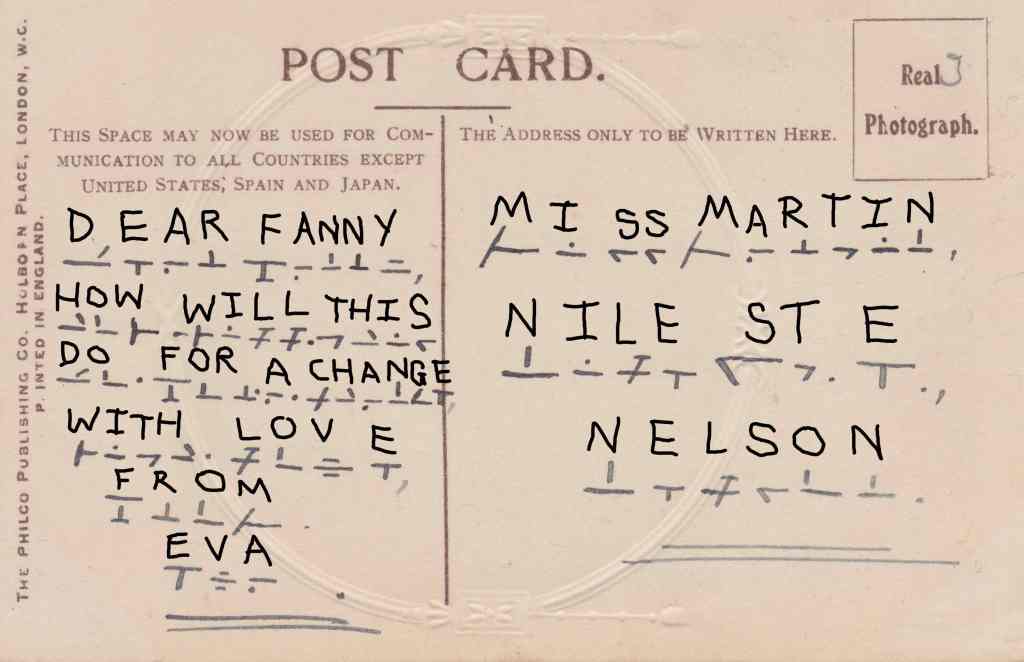 POST CARD.
Real
Photograph.
THIS SPACE MAY NOW BE USED FOR COM-
MUNICATION TO ALL COUNTRIES EXCEPT
UNITED STATES, SPAIN AND JAPAN.
DEAR FANNY
HOW WILL THIS
DO FOR A CHANGE
WITH LOVE
FROM
EVA
THE ADDRESS ONLY TO BE WRITTEN HERE.
MISS MARTIN
NILE ST E
NELSON
THE PHILCO PUBLISHING CO. HOLBORN PLACE, LONDON, W.C.
P.INTED IN ENGLAND.